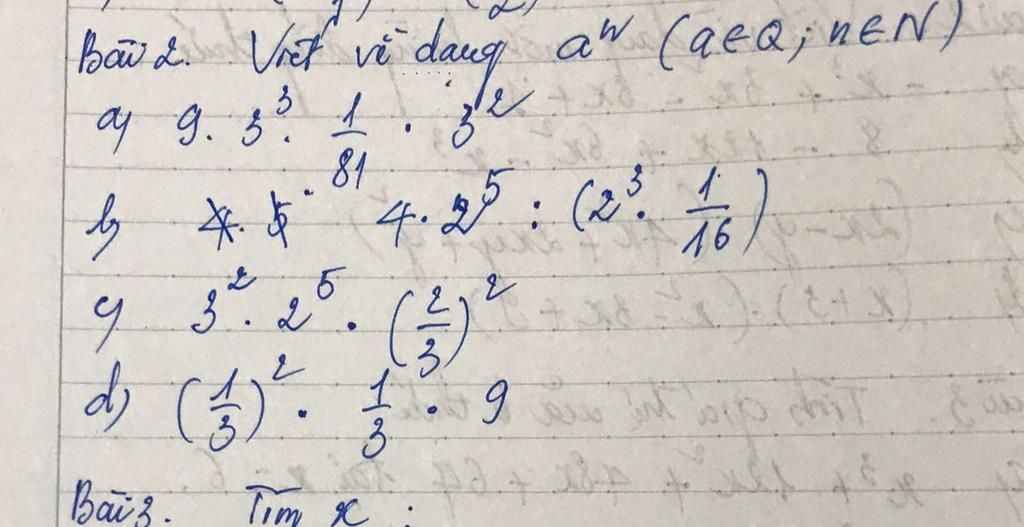 (2)
Bài 2. Viết về dạng aⁿ (a ∈ Q; n ∈ N)
a) 9 . 3³ . 1/81 . 3²
b) 4 . 2⁵ : (2³ . 1/16)
c) 3² . 2⁵ . (2/3)²
d) (1/3)² . 1/3 . 9
Bài 3. Tìm x :